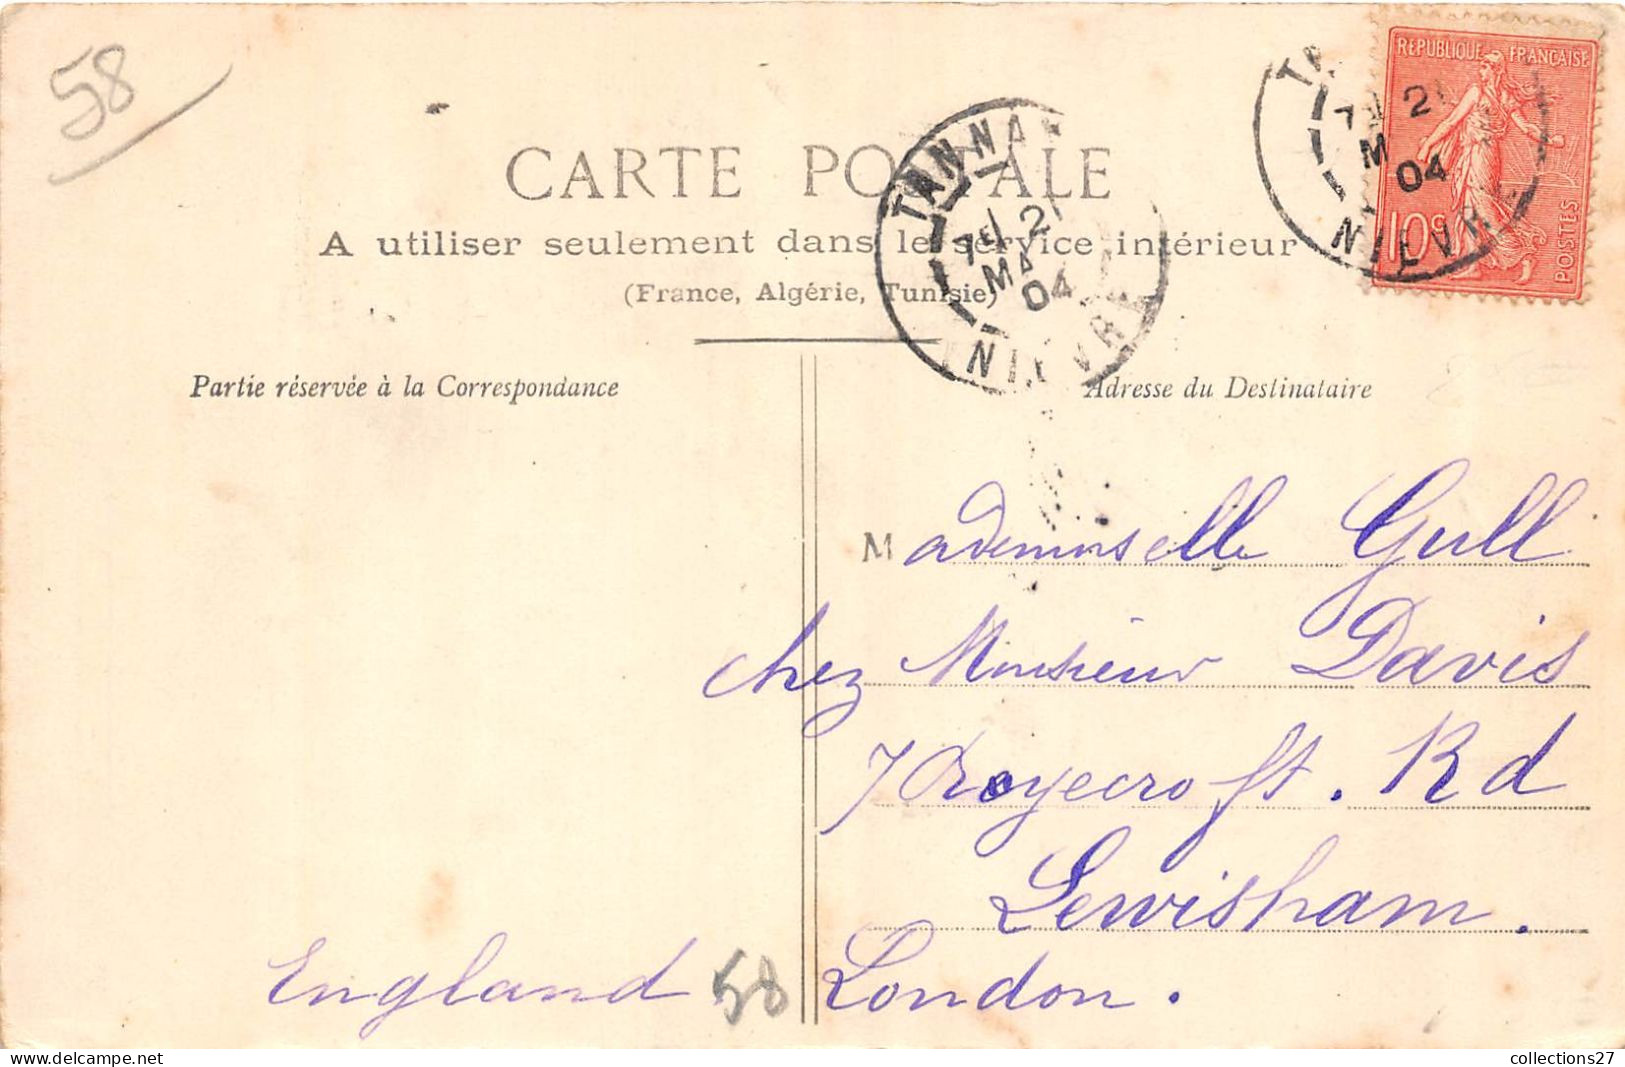 58
REPUBLIQUE FRANÇAISE
10c
POSTES
CARTE POSTALE
TANNAY
21
MA
04
NIEVRE
21
M
04
NIEVRE
A utiliser seulement dans le service intérieur
(France, Algérie, Tunisie)
Partie réservée à la Correspondance
Adresse du Destinataire
Mademoiselle Gull
chez Monsieur Davis
7 Royecroft. Rd
Lewisham.
England 58 London.
collections27